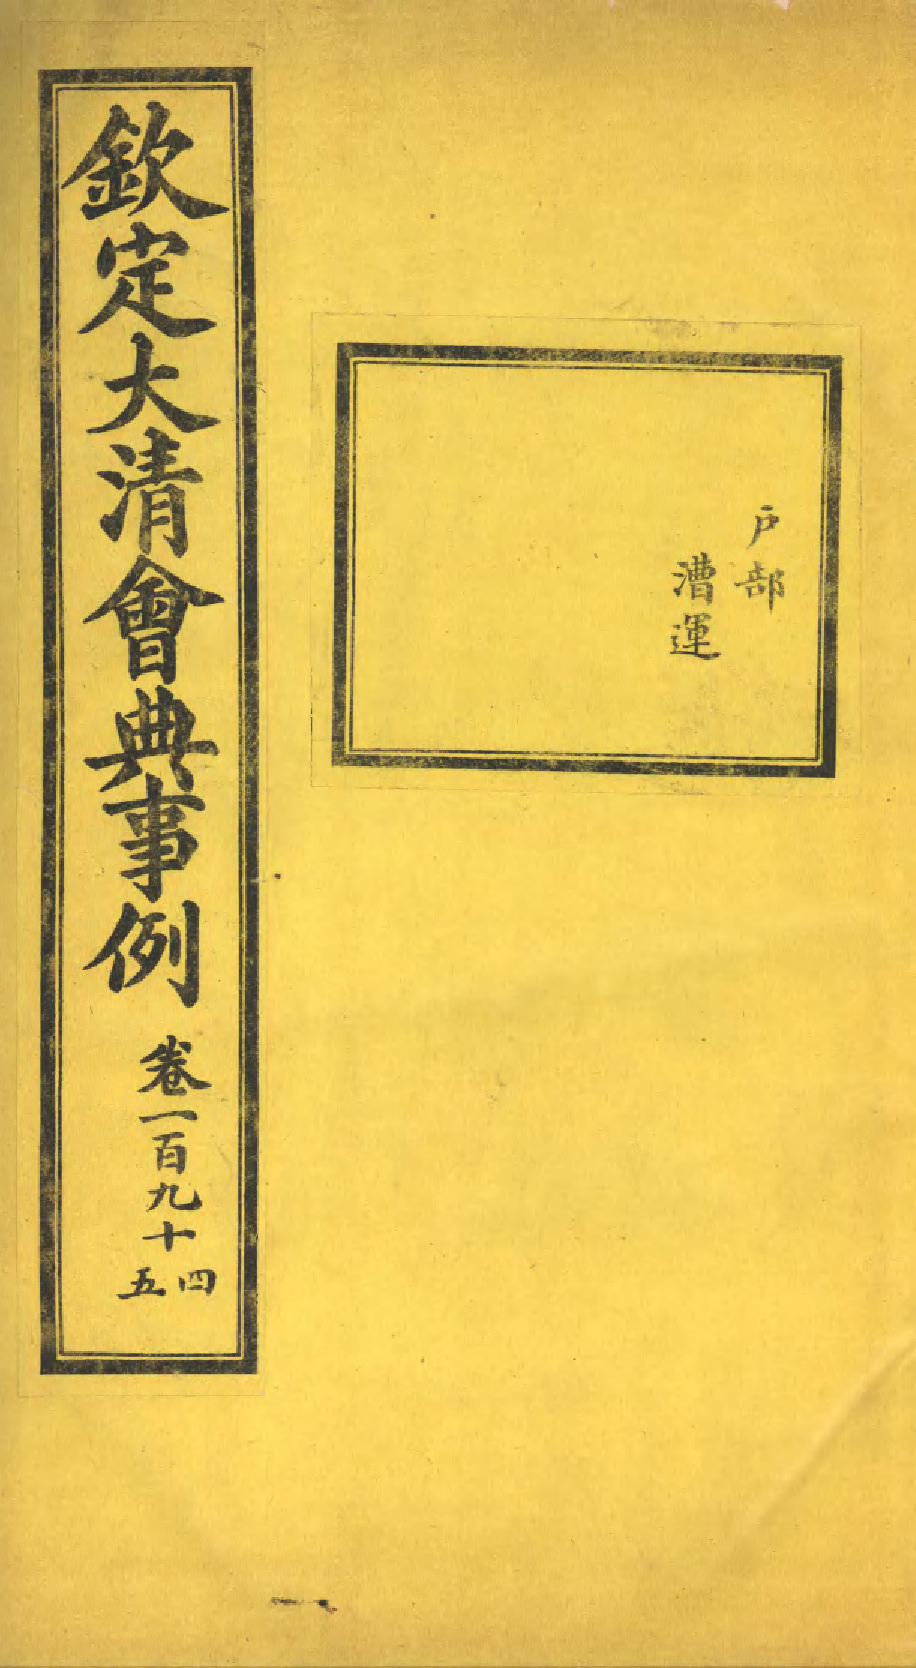 戶部
漕運
欽定大清會典事例 卷一百九十四五